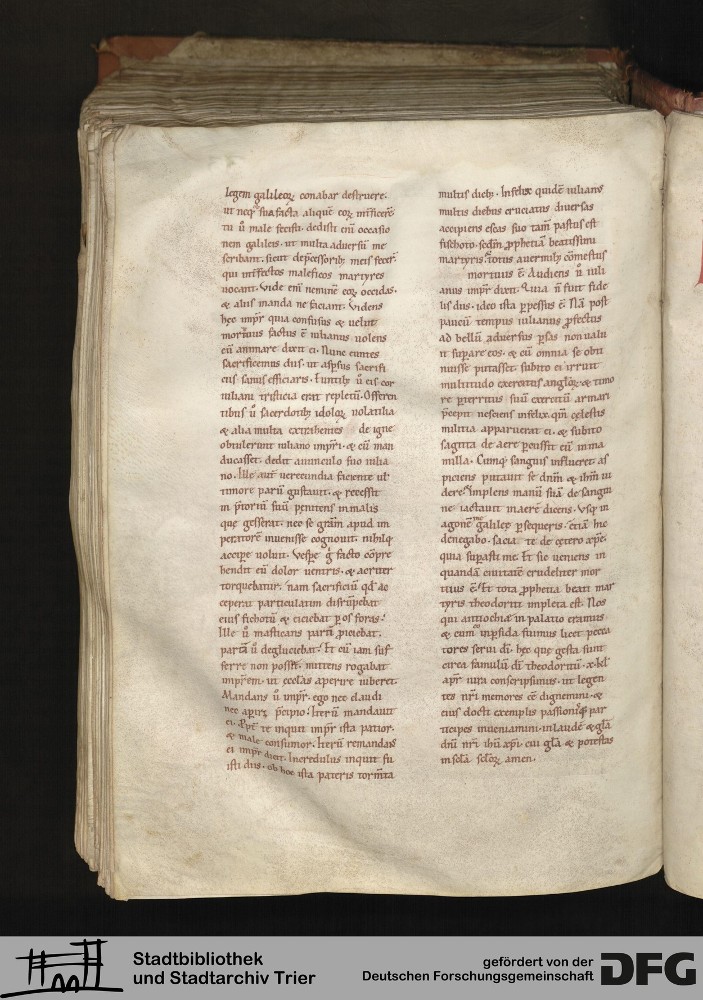 legem galileoꝝ conabar destruere.
ut neqꝫ sua facta aliquē eoꝝ īnficerē
tu ū male fecisti. dedisti enī occasio
nem galileis. ut multa adversū me
scribant. sicut decessoribꝫ meis fecerꝭ
qui īterfectos maleficos martyres
vocant. Vide enī neminē eoꝝ occidas.
& aliis manda ne faciant. Videns
hęc impr̄ quia confusus & velut
mortuus factus ē iulianus volens
eū animare dixit ei. Nunc euntes
sacrificemus diis. ut aspsus sacrifi
ciis sanus efficiaris. Euntibꝫ ū eis cor
iuliani tristicia erat repletū. Offeren
tibus ū sacerdotibꝫ idoloꝝ volatilia
& alia multa extrahentes de igne
obtulerunt iuliano impr̄i. & cū man
ducasset. dedit avunculo suo iulia
no. Ille aut̄ verecundia faciente ul̄
timore parū gustavit. & recessit
in p̄toriū suū penitens in malis
que gesserat. nec se gr̄am apud im
peratorē invenisse cognovit. nihilqꝫ
accipe voluit. Vespe g̊ facto cōpre
hendit eū dolor ventris. & acriter
torquebatur. nam sacrificiū qd̄ ac
ceperat particulatim disrūpebat
eius fichotū & eiciebat ꝑ os foras.
Ille ū masticans partē ꝓiciebat.
partē ū degluciebat. Et cū iam suf
ferre non posset. mittens rogabat
impr̄em. ut eccl̄as aperire iuberet.
Mandans ū impr̄. ego nec claudi
nec apirꝭ p̄cipio. Iterū mandavit
ei. Ppt̄ te inquit impr̄ ista patior.
& male consumor. Iterū remandans
ei impr̄ dixit. Incredulus inquit fu
isti diis. ob hoc ista pateris torm̄ta
multis diebꝫ. Infelix quidē iulianꝰ
multis diebus cruciatus diversas
accipiens escas suo tam̄ pastus est
fischoto. sedm̄ ꝓphetiā beatissimi
martyris. totus a vermibꝫ cōmestus
mortuus ē. Audiens ū iuli
anus impr̄ dixit. Quia n̄ fuit fide
lis diis. ideo ista ꝑpessus ē. Nā post
paucū tempus iulianus ꝓfectus
ad bellū adversus ꝑsas non valu
it supare eos. & cū omnia se obti
nuisse putasset. subito ei irruit
multitudo exercitus angl̄oꝝ. & timo
re ꝑterritus suū exercitū armari
p̄cepit nesciens infelix. qm̄ cęlestis
militia apparuerat ei. & subito
sagitta de aere ꝑcussit eū in ma
milla. Cumqꝫ sanguis influeret. as
piciens putavit se dn̄m & ihm̄ vi
dere. Implens manū suā de sangui
ne iactavit in aerē dicens. Usqꝫ in
agonē me galileę ꝑsequeris. etiā hic
denegabo. sacia te de cętero xp̄e.
quia supasti me. Et sic veniens in
quandā civitatē crudeliter mor
tuus ē. Et tota ꝓphetia beati mar
tyris theodoriti impleta est. Nos
qui antiochię in palatio eramus
& cum eo in ꝑsida fuimus licet pecca
tores servi dī. hęc que gesta sunt
circa famulū dī theodoritū. x. kl̄
apr̄ iura conscripsimus. ut legen
tes nr̄i memores eē dignemini. &
eius docti exemplis passioniqꝫ par
ticipes inveniamini. in laudē & gl̄a
dn̄i nr̄i ihū xp̄i. cui gl̄a & potestas
in scl̄a scl̄oꝝ amen.
Stadtbibliothek
und Stadtarchiv Trier
gefördert von der
Deutschen Forschungsgemeinschaft
DFG